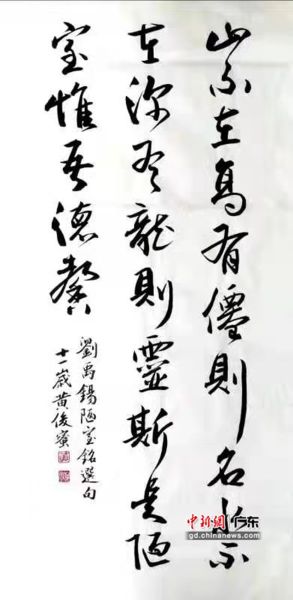 山不在高有僊則名水不
在深有龍則靈斯是陋
室惟吾德馨
劉禹錫陋室銘選句
十一歲黄俊賓
中新网 广东
gd.chinanews.com